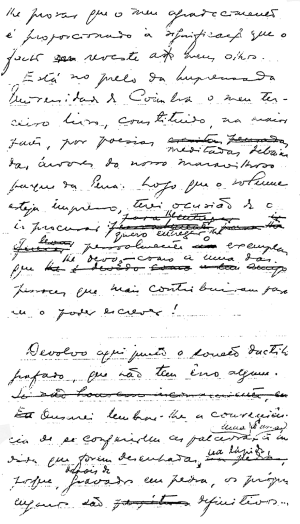 lhe provar que o meu agradecimento
é proporcionado à significação que o
facto reveste aos meus olhos.
Está no prelo da Imprensa da
Universidade de Coimbra o meu ter-
ceiro livro, constituido, na maior
parte, por poesias
meditadas debaixo
das árvores do nosso maravilhoso
parque da Pena. Logo que o volume
esteja impresso, terei ocasião de o
ir procurar para lhe
quero entregar-lhe
pessoalmente o exemplar
que lhe devo como a uma das
pessoas que mais contribuiram para
eu o poder escrever!
Devolvo aqui junto o soneto dactilo-
grafado, que não tem êrro algum.
Ousarei lembrar-lhe a conveniên-
cia de se conferirem as palavras à me-
dida que forem desenhadas, na lápide,
porque, depois de gravados em pedra, os próprios
enganos são definitivos...